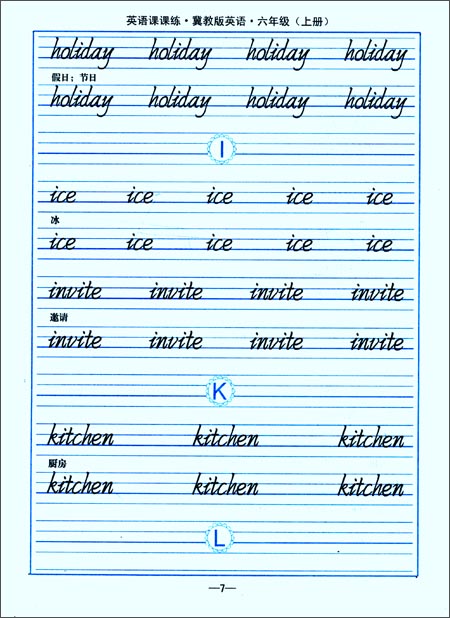 英语课课练·冀教版英语·六年级（上册）
holiday holiday holiday holiday
假日；节日
holiday holiday holiday holiday
I
ice ice ice ice ice
冰
ice ice ice ice ice
invite invite invite invite
邀请
invite invite invite invite
K
kitchen kitchen kitchen
厨房
kitchen kitchen kitchen
L
—7—